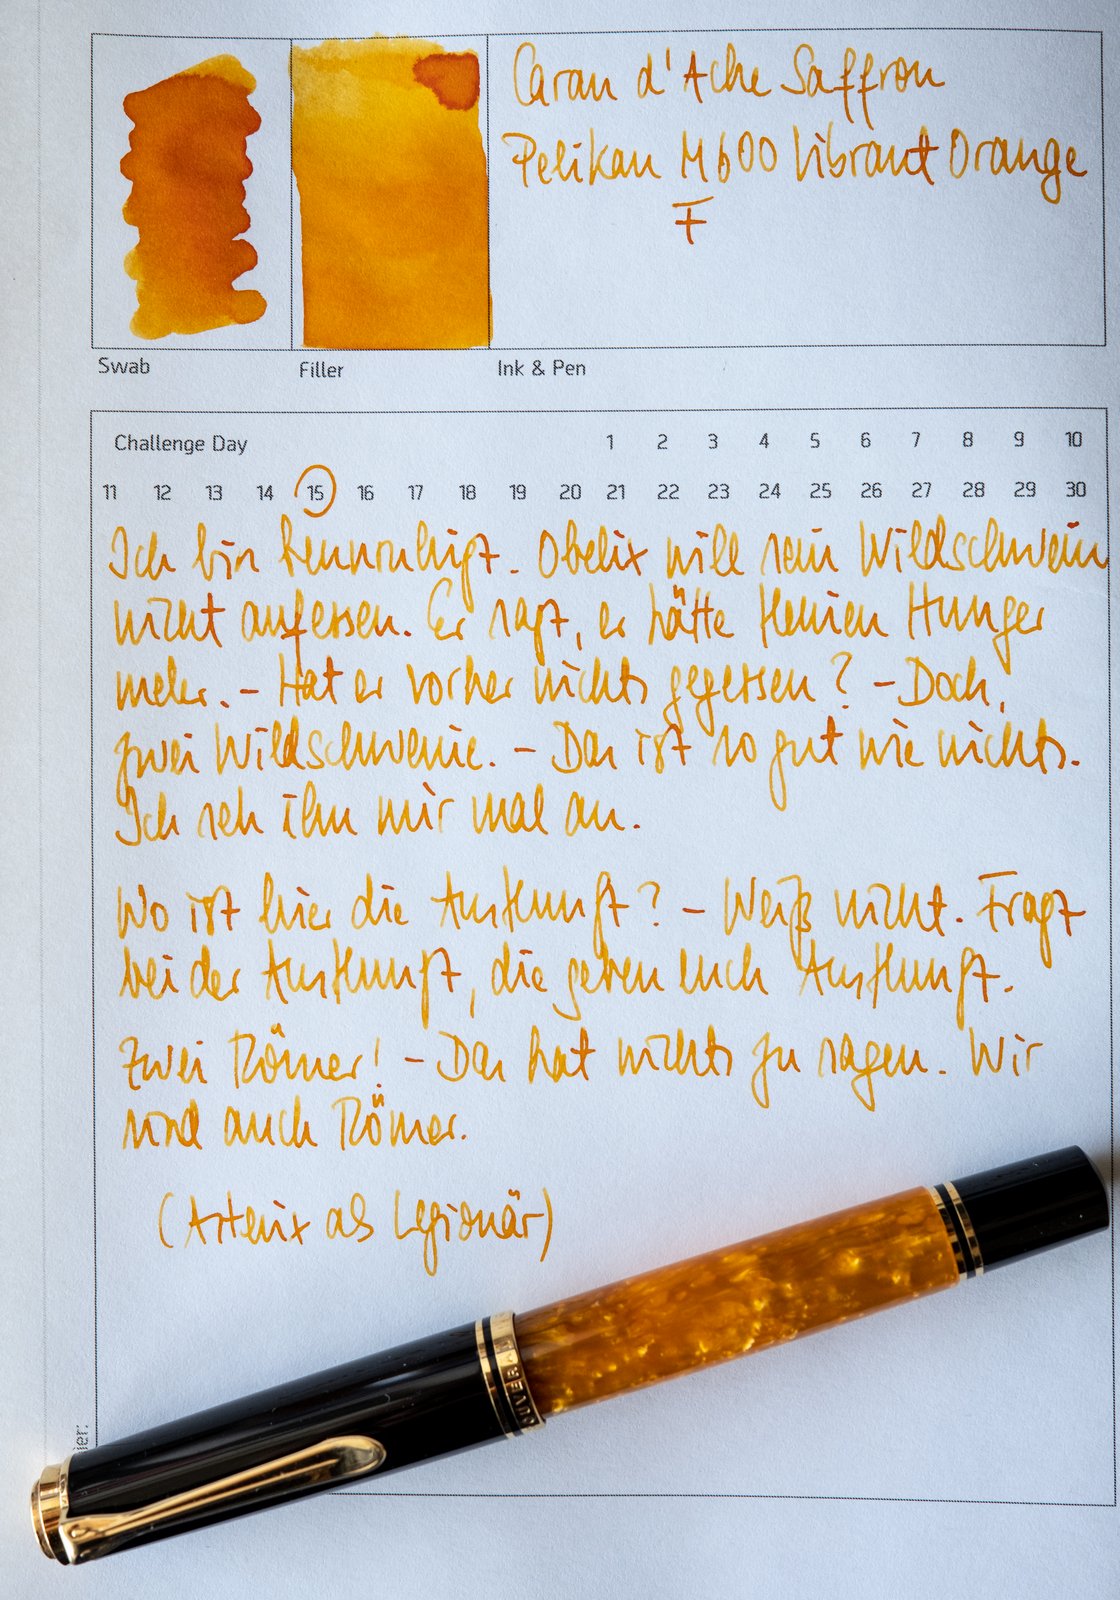 Caran d'Ache Saffron
Pelikan M600 Vibrant Orange
F
Swab
Filler
Ink & Pen
Challenge Day
1 2 3 4 5 6 7 8 9 10
11 12 13 14 15 16 17 18 19 20 21 22 23 24 25 26 27 28 29 30
Ich bin beunruhigt. Obelix will sein Wildschwein
nicht aufessen. Er sagt, er hätte keinen Hunger
mehr. – Hat er vorher nichts gegessen? – Doch,
zwei Wildschweine. – Das ist so gut wie nichts.
Ich seh ihn mir mal an.
Wo ist hier die Auskunft? – Weiß nicht. Fragt
bei der Auskunft, die geben euch Auskunft.
Zwei Römer! – Das hat nichts zu sagen. Wir
sind auch Römer.
(Asterix als Legionär)